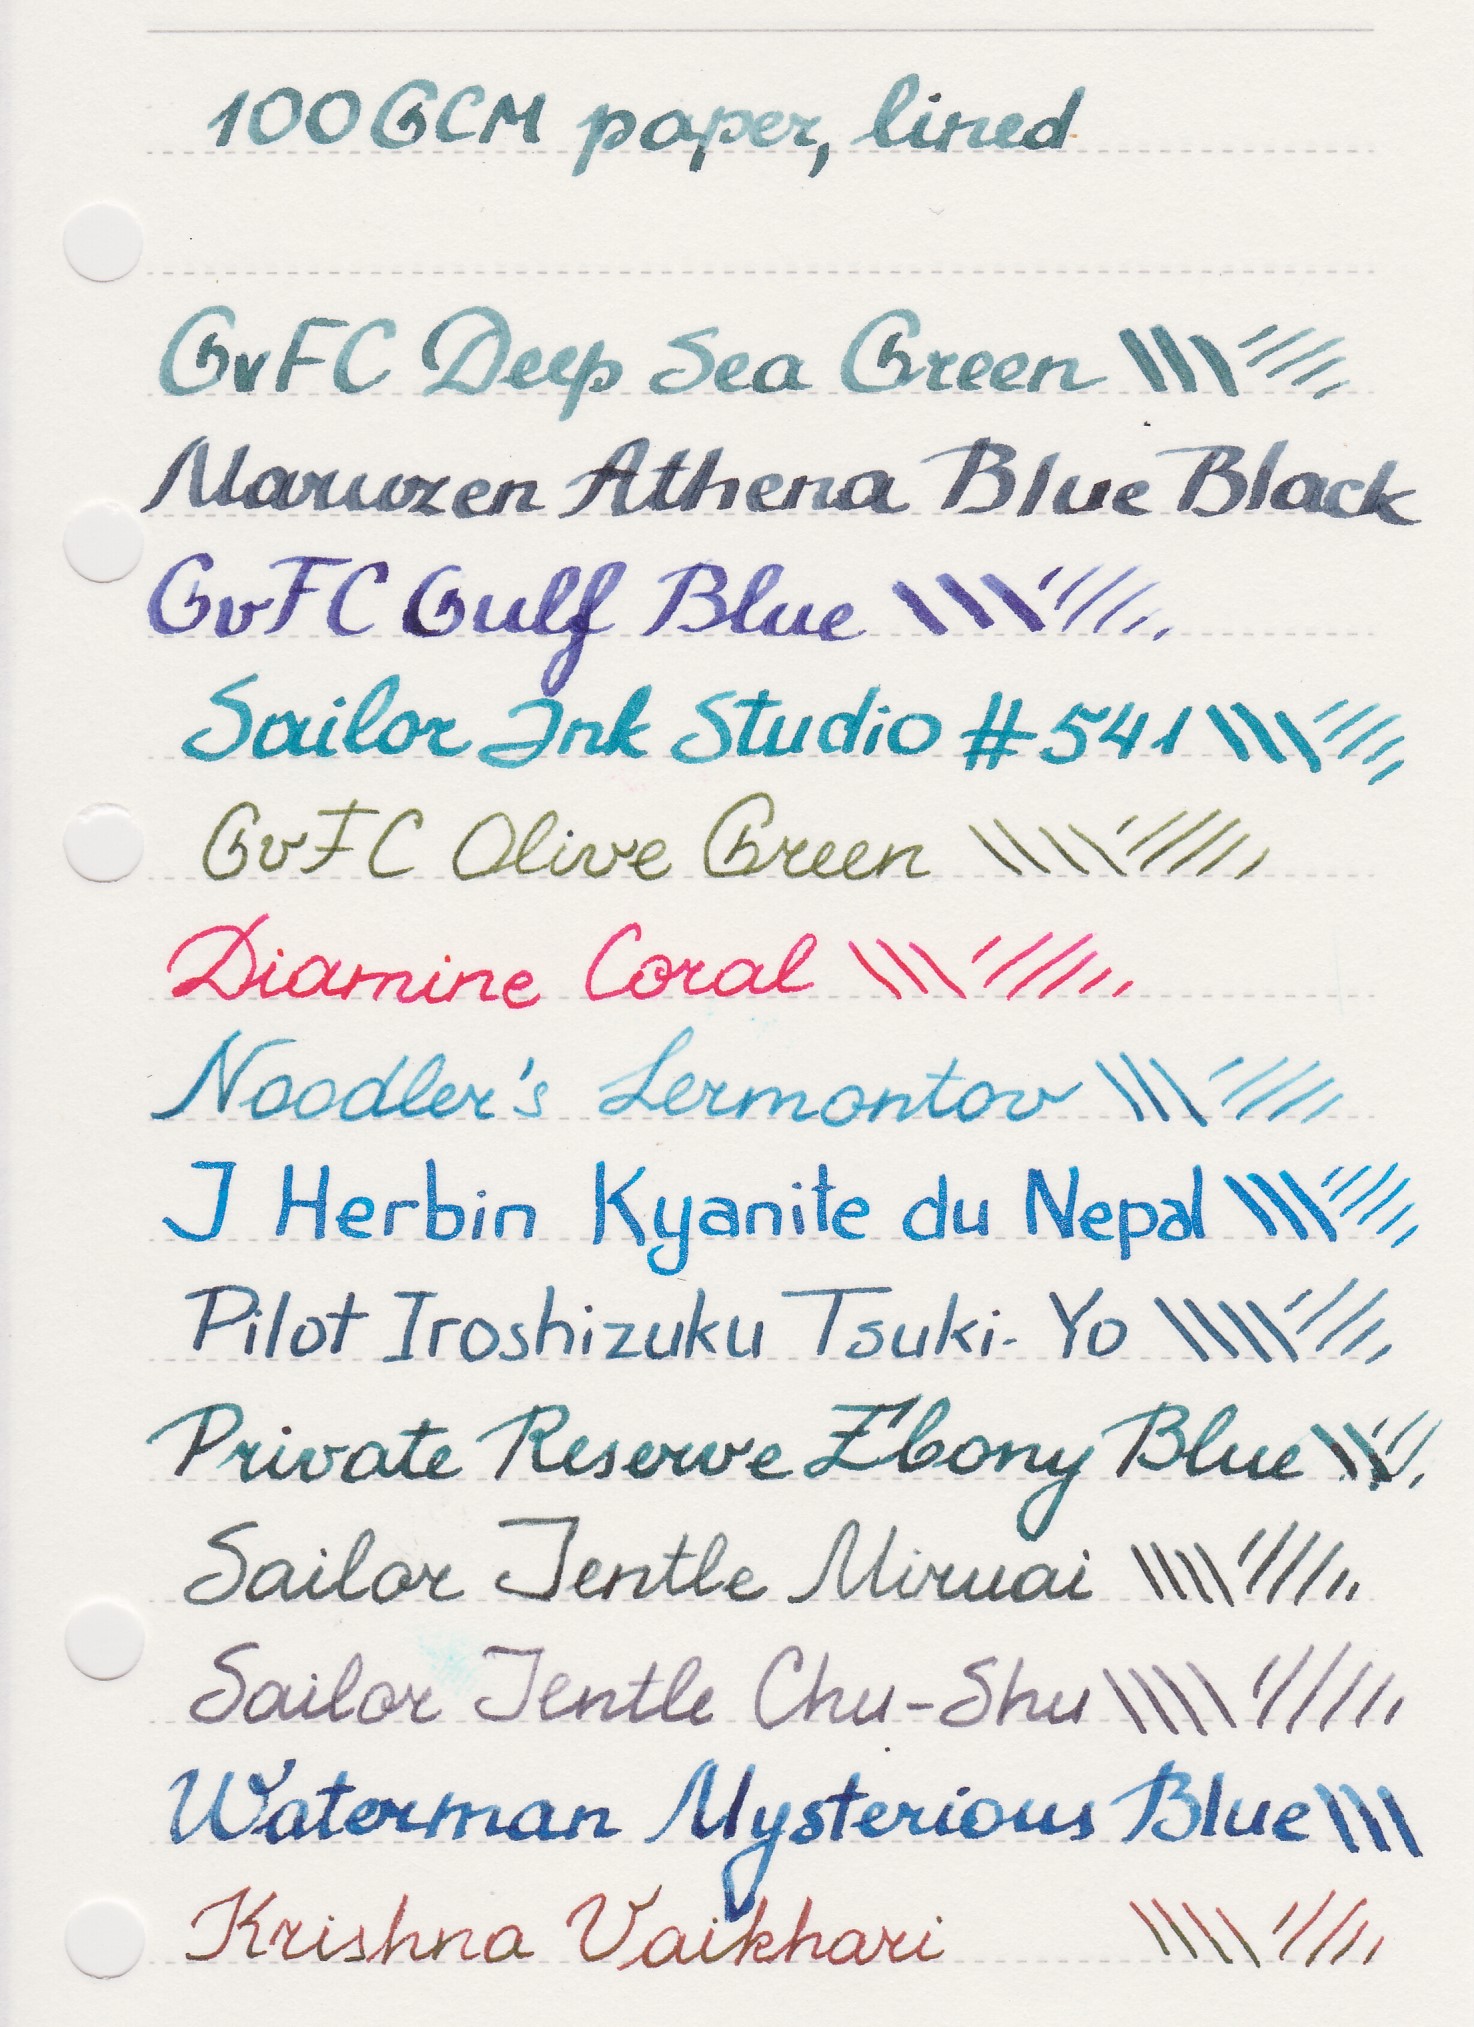 100 GCM paper, lined
GvFC Deep Sea Green
Maruzen Athena Blue Black
GvFC Gulf Blue
Sailor Ink Studio #541
GvFC Olive Green
Diamine Coral
Noodler's Lermontov
J Herbin Kyanite du Nepal
Pilot Iroshizuku Tsuki-Yo
Private Reserve Ebony Blue
Sailor Jentle Miruai
Sailor Jentle Chu-Shu
Waterman Mysterious Blue
Krishna Vaikhari